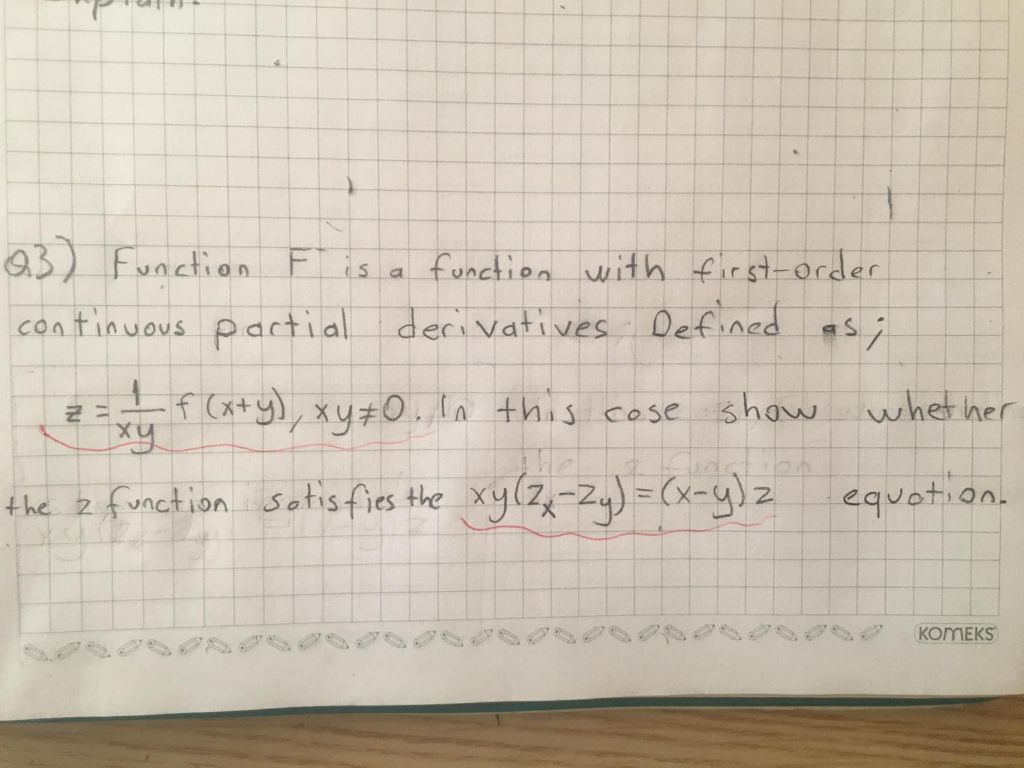 Q3) Function F is a function with first-order
continuous partial derivatives Defined as;
z = 1/xy f (x+y), xy≠0. In this case show whether
the z function
the z function satisfies the xy(Zx-Zy)=(x-y)z equation.
KOMEKS